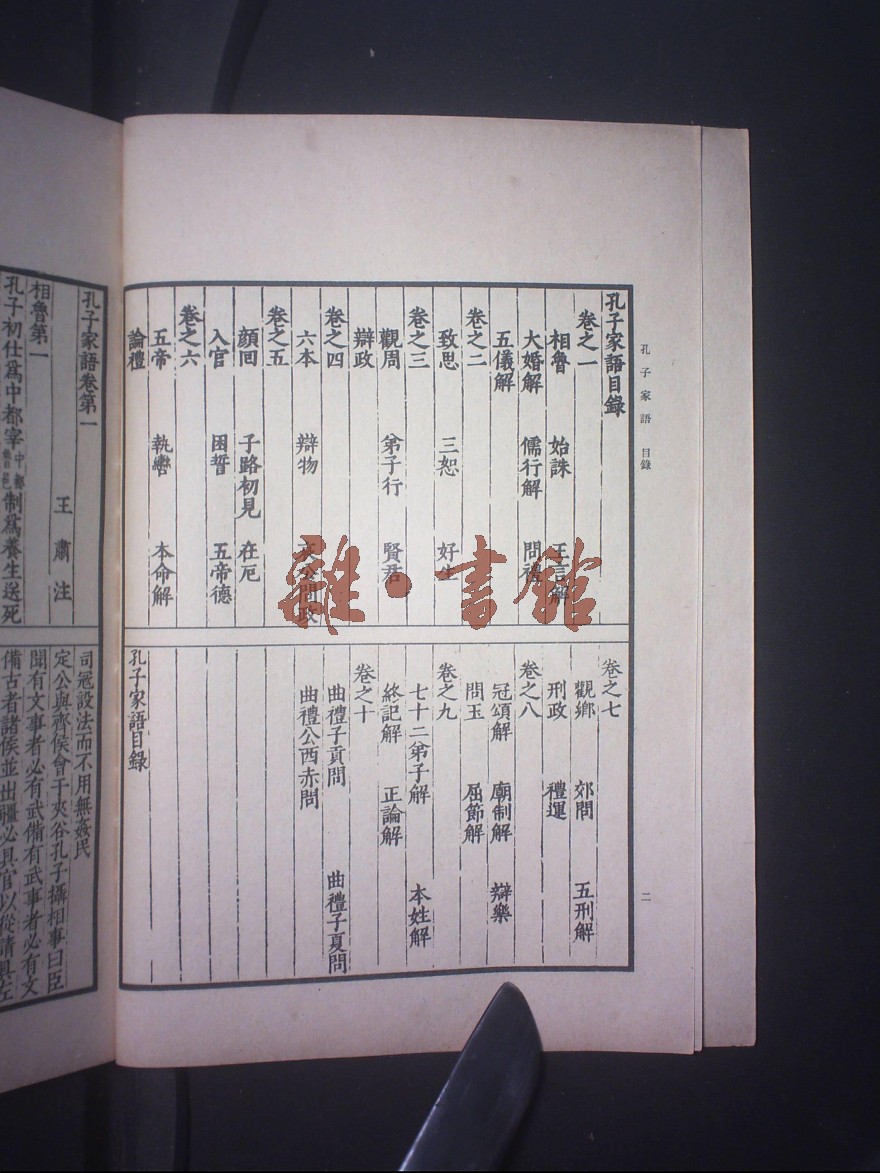 孔子家語目錄
卷之一
相魯 始誅 王言解
大婚解 儒行解 問禮
五儀解
卷之二
致思 三恕 好生
卷之三
觀周 弟子行 賢君
辯政
卷之四
六本 辯物 哀公問政
卷之五
顏回 子路初見 在厄
入官 困誓 五帝德
卷之六
五帝 執轡 本命解
論禮
卷之七
觀鄉 郊問 五刑解
刑政 禮運
卷之八
冠頌解 廟制解 辯樂
問玉 屈節解
卷之九
七十二弟子解 本姓解
終記解 正論解
卷之十
曲禮子貢問 曲禮子夏問
曲禮公西赤問
孔子家語目錄
孔子家語 目錄
二
孔子家語卷第一
王肅注
相魯第一
孔子初仕爲中都宰中都魯邑制爲養生送死
司寇設法而不用無姦民
定公與齊侯會于夾谷孔子攝相事曰臣
聞有文事者必有武備有武事者必有文
備古者諸侯並出疆必具官以從請具左
雜·書館